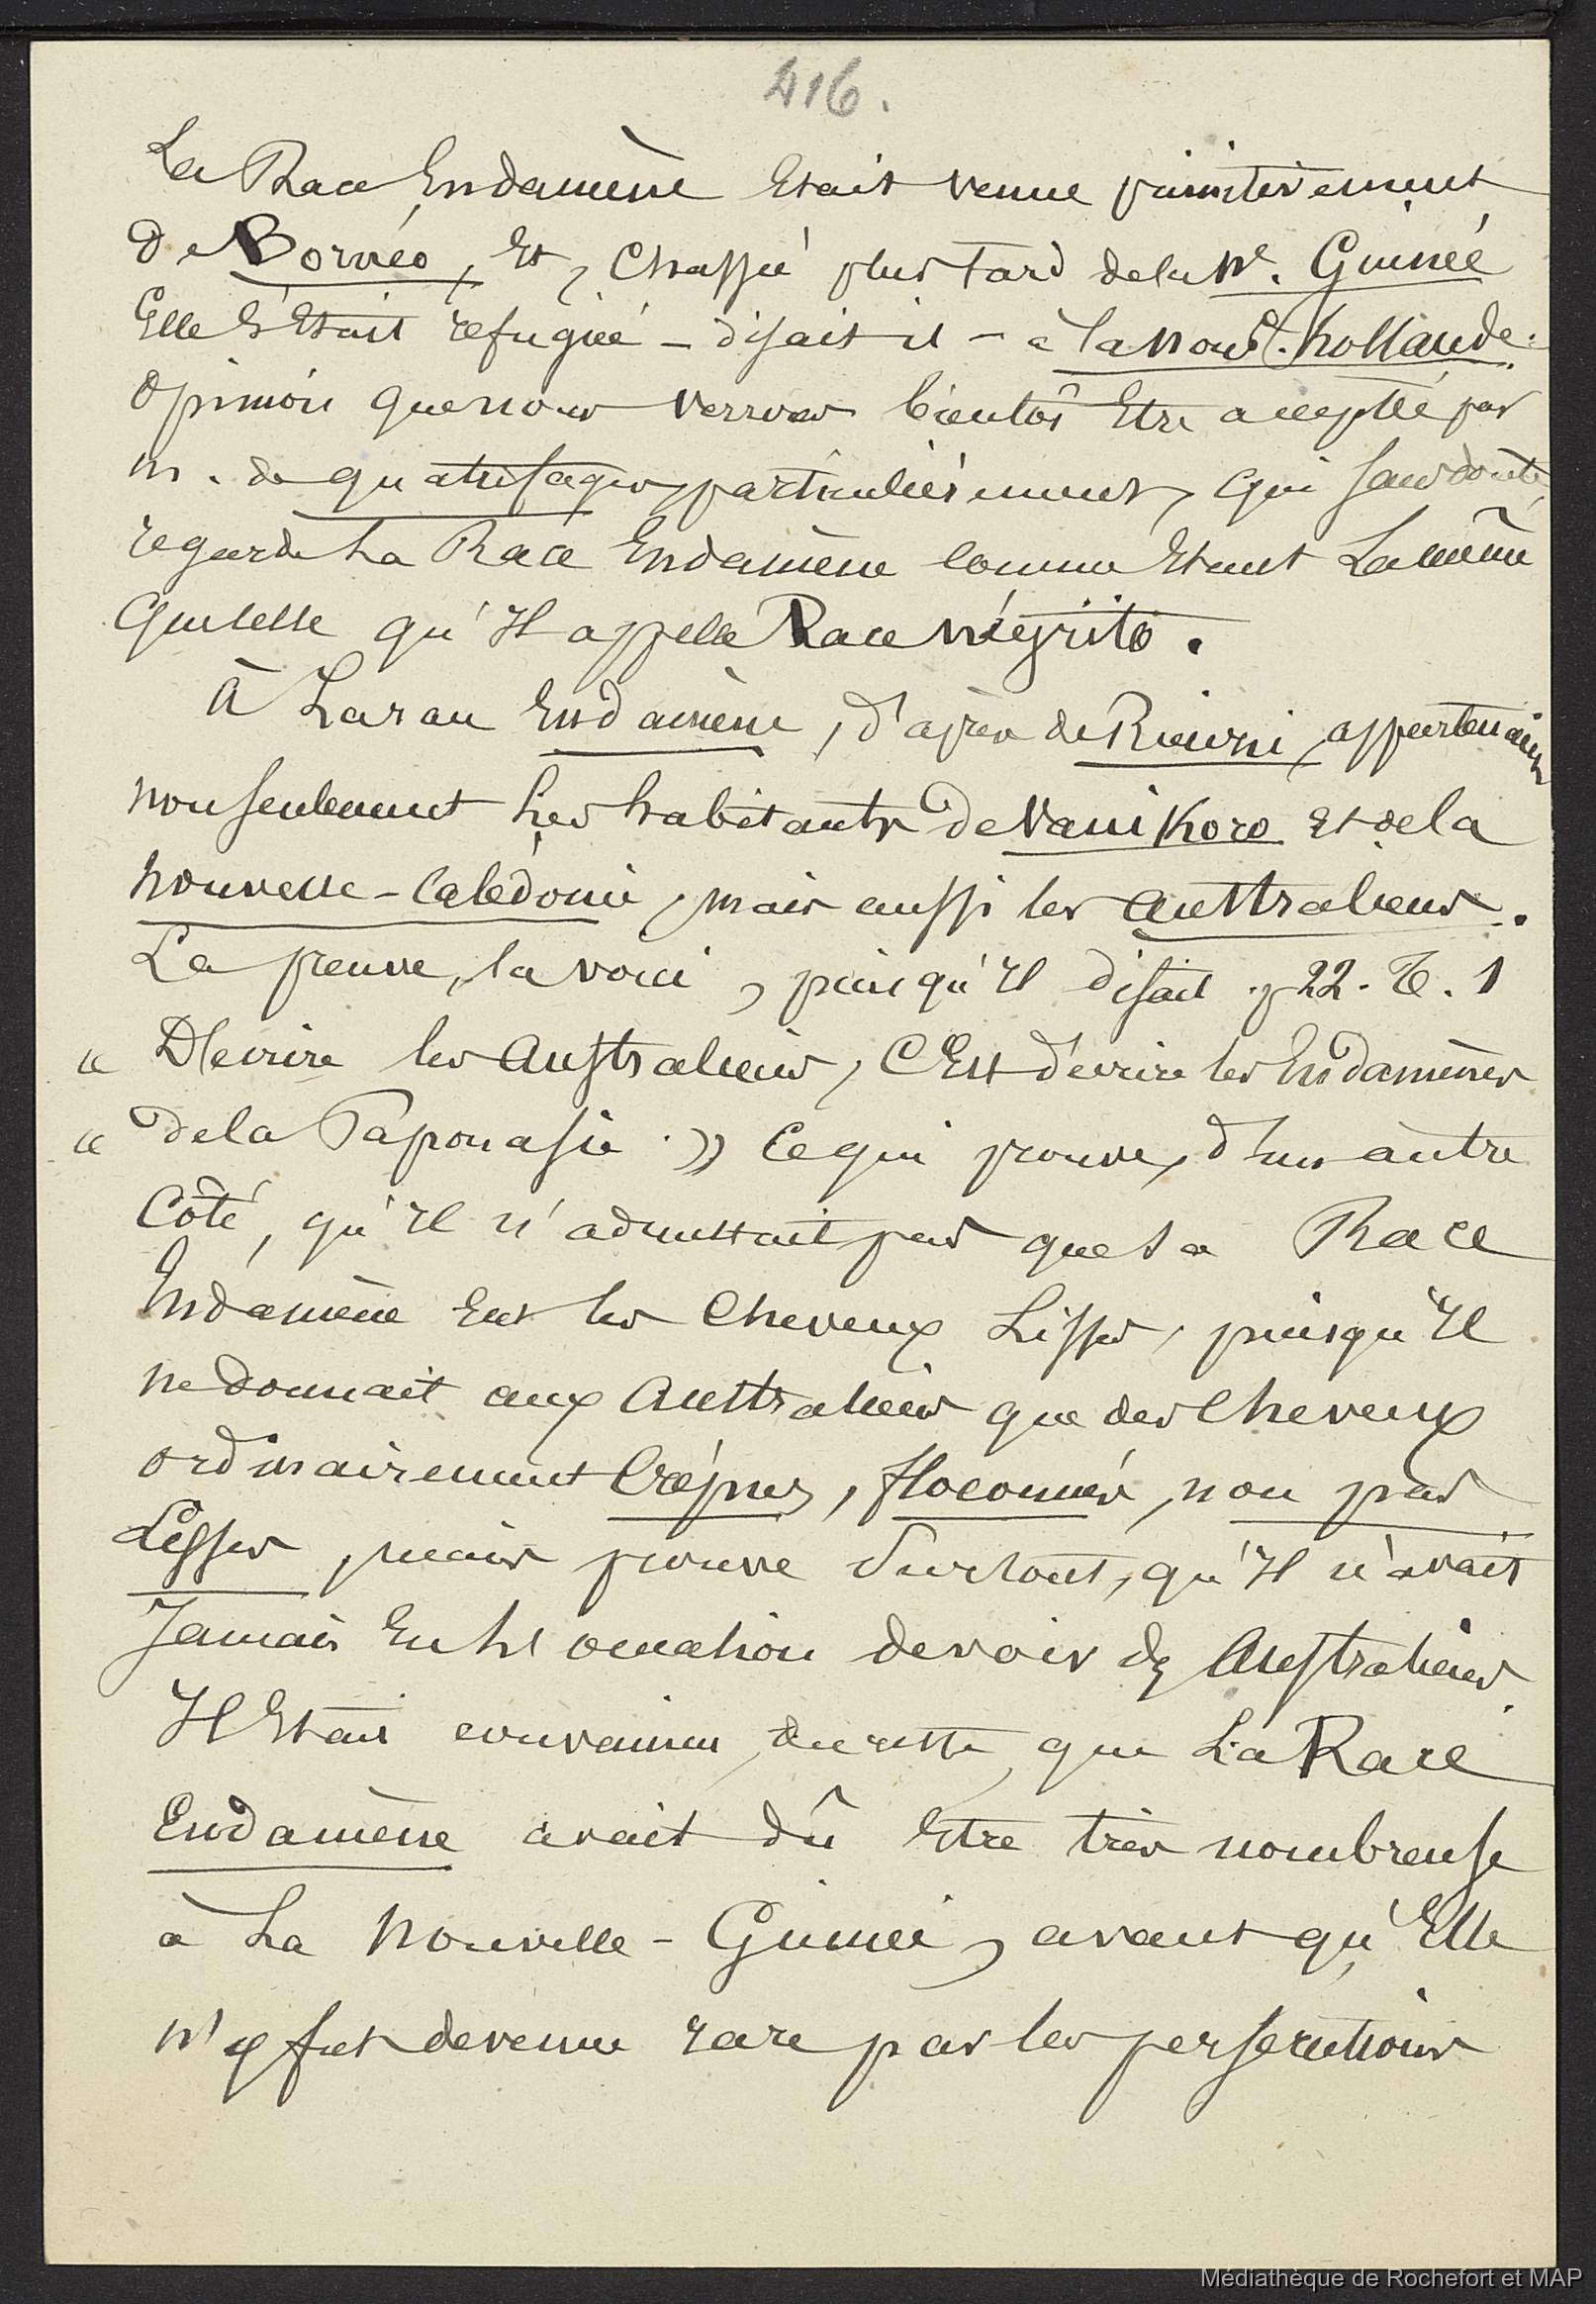 416.
La Race Endamène Etait venue primitivement
de Bornéo, Et, Chassée plus tard de la Nle. Guinée
Elle s'Etait refugiée - disait il - à la Nouvle. hollande.
Opinion que nous verrons bientôt Etre acceptée par
M. de quatrefages, particulièrement, qui sans doute,
regarde La Race Endamène comme Etant La même
que celle qu'Il appelle Race Négrito.
À La race Endamène, d'après de Rienzi, appartenaient
non seulement Les habitants de Vanikoro et de la
nouvelle-Calédonie, mais aussi les Australiens.
La preuve, la voici, puisqu'Il disait p 22. T. 1
" Décrire les Australiens, C'Est décrire les Endamènes
" de la Papouasie." Ce qui prouve, d'un autre
Côté, qu'Il n'admettait pas que sa Race
Endamène Eut les Cheveux Lisses, puisqu'Il
ne donnait aux Australiens que des Cheveux
ordinairement Crépus, floconnés, non pas
Lisses, mais prouve Surtout, qu'Il n'avait
Jamais Eu L'occation de voir des Australiens.
Il Etait convaincu, du reste, que La Race
Endamène avait dû Etre très nombreuse
à La Nouvelle-Guinée, avant qu'Elle
n'y fut devenue rare par les persécutions
Médiathèque de Rochefort et MAP